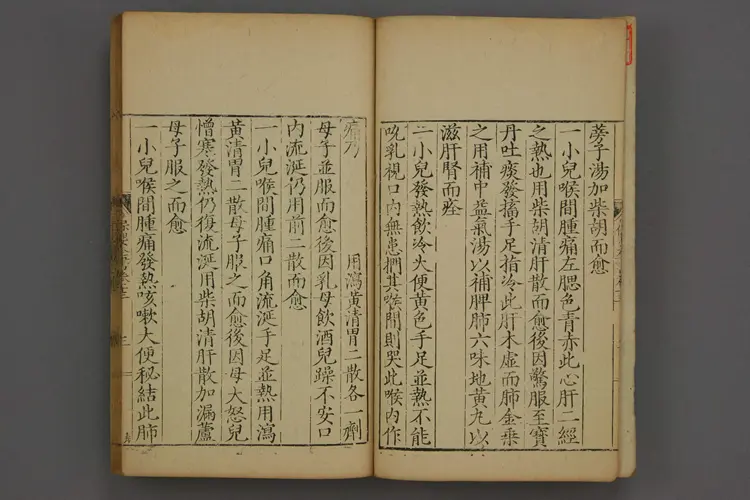 蒡子湯加柴胡而愈
一小兒喉間腫痛左腮色青赤此心肝二經
之熱也用柴胡清肝散而愈後因驚服至寶
丹吐痰發搐手足指冷此肝木虛而肺金乗
之用補中益氣湯以補脾肺六味地黄丸以
滋肝腎而痊
一小兒發熱飲冷大便黄色手足並熱不能
吮乳視口内無患捫其喉間則哭此喉内作
痛乃 用瀉黄清胃二散各一劑
母子並服而愈後因乳母飲酒兒躁不安口
内流涎仍用前二散而愈
一小兒喉間腫痛口角流涎手足並熱用瀉
黄清胃二散母子服之而愈後因母大怒兒
憎寒發熱仍復流涎用柴胡清肝散加漏蘆
母子服之而愈
一小兒喉間腫痛發熱咳嗽大便秘結此肺